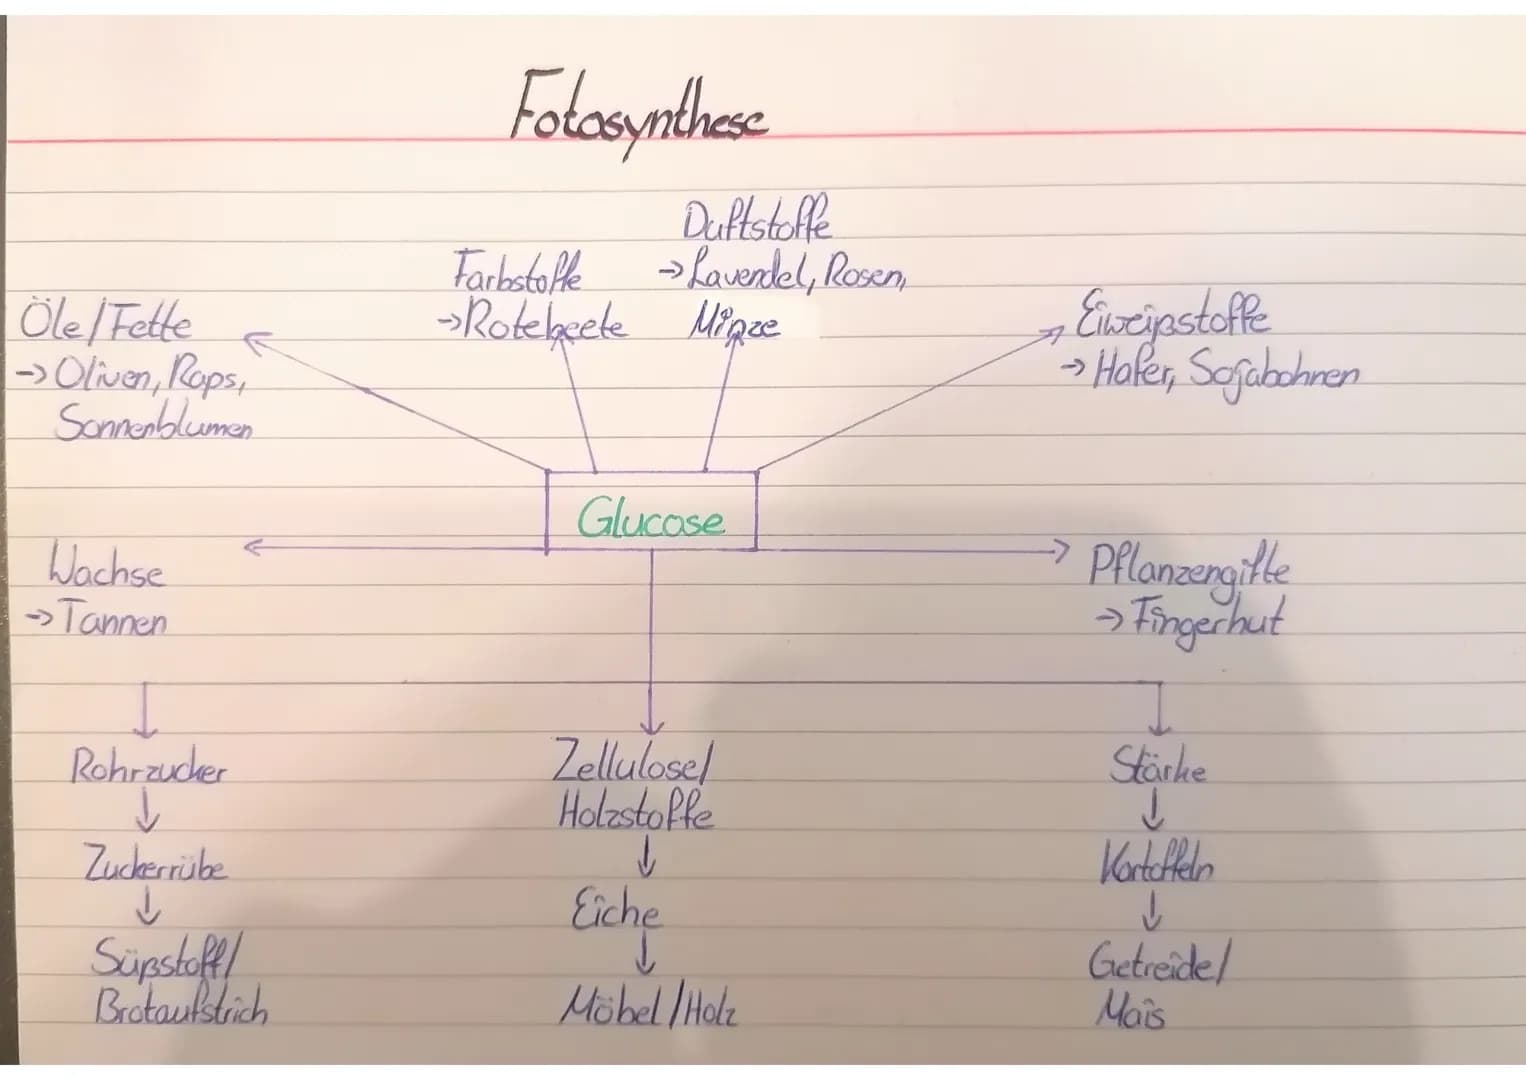 Fotosynthese
Duftstoffe
→ Lavendel, Rosen,
Minze
Farbstoffe
→ Rotebeete
Öle/Fette
→ Oliven, Raps,
Sonnenblumen
Eiweißstoffe
→ Hafer, Sojabohnen
Glucose
Wachse
→ Tannen
Pflanzengifte
→ Fingerhut
Rohrzucker
↓
Zuckerrübe
↓
Süßstoff/
Brotaufstrich
Zellulose/
Holzstoffe
↓
Eiche
↓
Möbel/Holz
Stärke
↓
Kartoffeln
↓
Getreide/
Mais